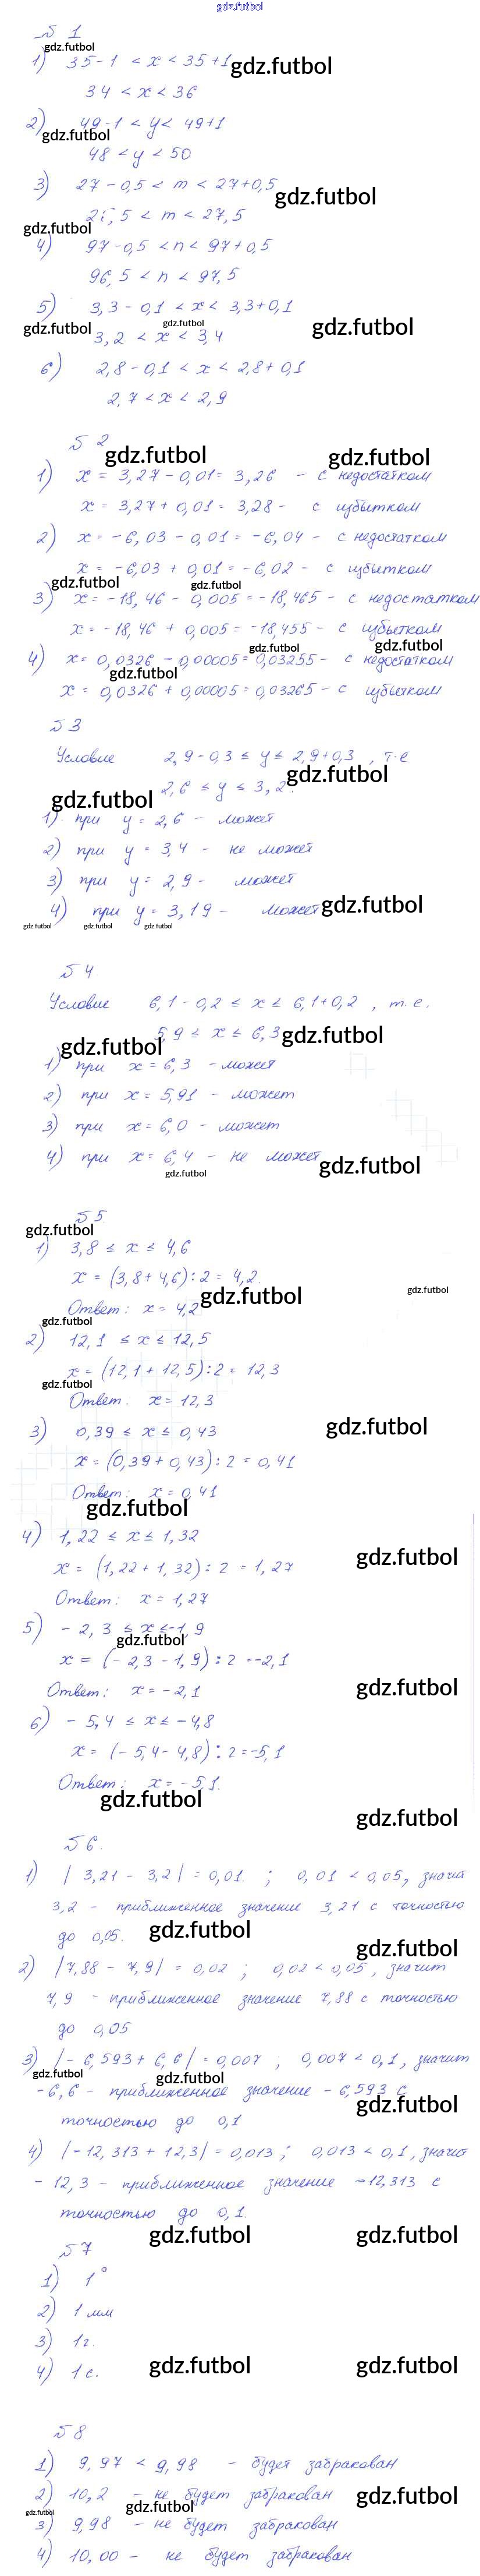 gdz.futbol
№ 1
gdz.futbol
1) 35-1 < x < 35+1
gdz.futbol
34 < x < 36
2) 49-1 < y < 49+1
gdz.futbol
48 < y < 50
3) 27-0,5 < m < 27+0,5
gdz.futbol
26,5 < m < 27,5
gdz.futbol
4) 97-0,5 < n < 97+0,5
96,5 < n < 97,5
5) 3,3-0,1 < x < 3,3+0,1
gdz.futbol gdz.futbol gdz.futbol
3,2 < x < 3,4
6) 2,8-0,1 < x < 2,8+0,1
2,7 < x < 2,9
№ 2
gdz.futbol gdz.futbol
1) x = 3,27-0,01 = 3,26 - с недостатком
x = 3,27+0,01 = 3,28 - с избытком
2) x = -6,03 - 0,01 = -6,04 - с недостатком
x = -6,03 + 0,01 = -6,02 - с избытком
gdz.futbol gdz.futbol
3) x = -18,46 - 0,005 = -18,465 - с недостатком
x = -18,46 + 0,005 = -18,455 - с избытком
gdz.futbol gdz.futbol
4) x = 0,0326 - 0,00005 = 0,03255 - с недостатком
gdz.futbol
x = 0,0326 + 0,00005 = 0,03265 - с избытком
№ 3
Условие 2,9-0,3 ≤ y ≤ 2,9+0,3, т.е
gdz.futbol
2,6 ≤ y ≤ 3,2.
gdz.futbol
1) при y = 2,6 - может
2) при y = 3,4 - не может
3) при y = 2,9 - может
4) при y = 3,19 - может
gdz.futbol
gdz.futbol gdz.futbol gdz.futbol
№ 4
Условие 6,1-0,2 ≤ x ≤ 6,1+0,2, т.е.
5,9 ≤ x ≤ 6,3
gdz.futbol
gdz.futbol
1) при x = 6,3 - может
2) при x = 5,91 - может
3) при x = 6,0 - может
4) при x = 6,4 - не может
gdz.futbol
gdz.futbol
№ 5
gdz.futbol
1) 3,8 ≤ x ≤ 4,6
x = (3,8+4,6):2 = 4,2.
gdz.futbol gdz.futbol
Ответ: x = 4,2
gdz.futbol
2) 12,1 ≤ x ≤ 12,5
x = (12,1+12,5):2 = 12,3
gdz.futbol
Ответ. x = 12,3
gdz.futbol
3) 0,39 ≤ x ≤ 0,43
x = (0,39+0,43):2 = 0,41
Ответ: x = 0,41
gdz.futbol
4) 1,22 ≤ x ≤ 1,32
gdz.futbol
x = (1,22+1,32):2 = 1,27
Ответ: x = 1,27
5) -2,3 ≤ x ≤ -1,9
gdz.futbol
x = (-2,3-1,9):2 = -2,1
gdz.futbol
Ответ: x = -2,1
6) -5,4 ≤ x ≤ -4,8
x = (-5,4-4,8):2 = -5,1
Ответ: x = -5,1.
gdz.futbol
gdz.futbol
№ 6.
1) |3,21 - 3,2| = 0,01. ; 0,01 < 0,05, значит
3,2 - приближенное значение 3,21 с точностью
до 0,05.
gdz.futbol gdz.futbol
2) |7,88 - 7,9| = 0,02; 0,02 < 0,05, значит
7,9 - приближенное значение 7,88 с точностью
до 0,05
3) |-6,593+6,6| = 0,007; 0,007 < 0,1, значит
gdz.futbol gdz.futbol
-6,6 - приближенное значение -6,593 с
gdz.futbol
точностью до 0,1
4) |-12,313+12,3| = 0,013; 0,013 < 0,1, значит
-12,3 - приближенное значение -12,313 с
точностью до 0,1.
gdz.futbol gdz.futbol
№ 7
1) 1°
2) 1 мм
3) 1г.
4) 1с.
gdz.futbol gdz.futbol
№ 8
1) 9,97 < 9,98 - будет забракован
2) 10,2 - не будет забракован
gdz.futbol
gdz.futbol gdz.futbol
3) 9,98 - не будет забракован
4) 10,00 - не будет забракован